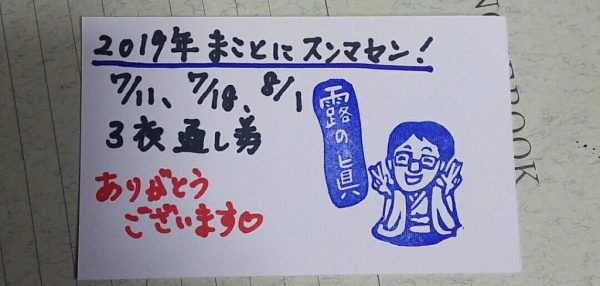 2019年 まことに スンマセン!
7/11、7/18、8/1
3夜通し券
ありがとう
ございます♡
露の眞
NO
EBOOK